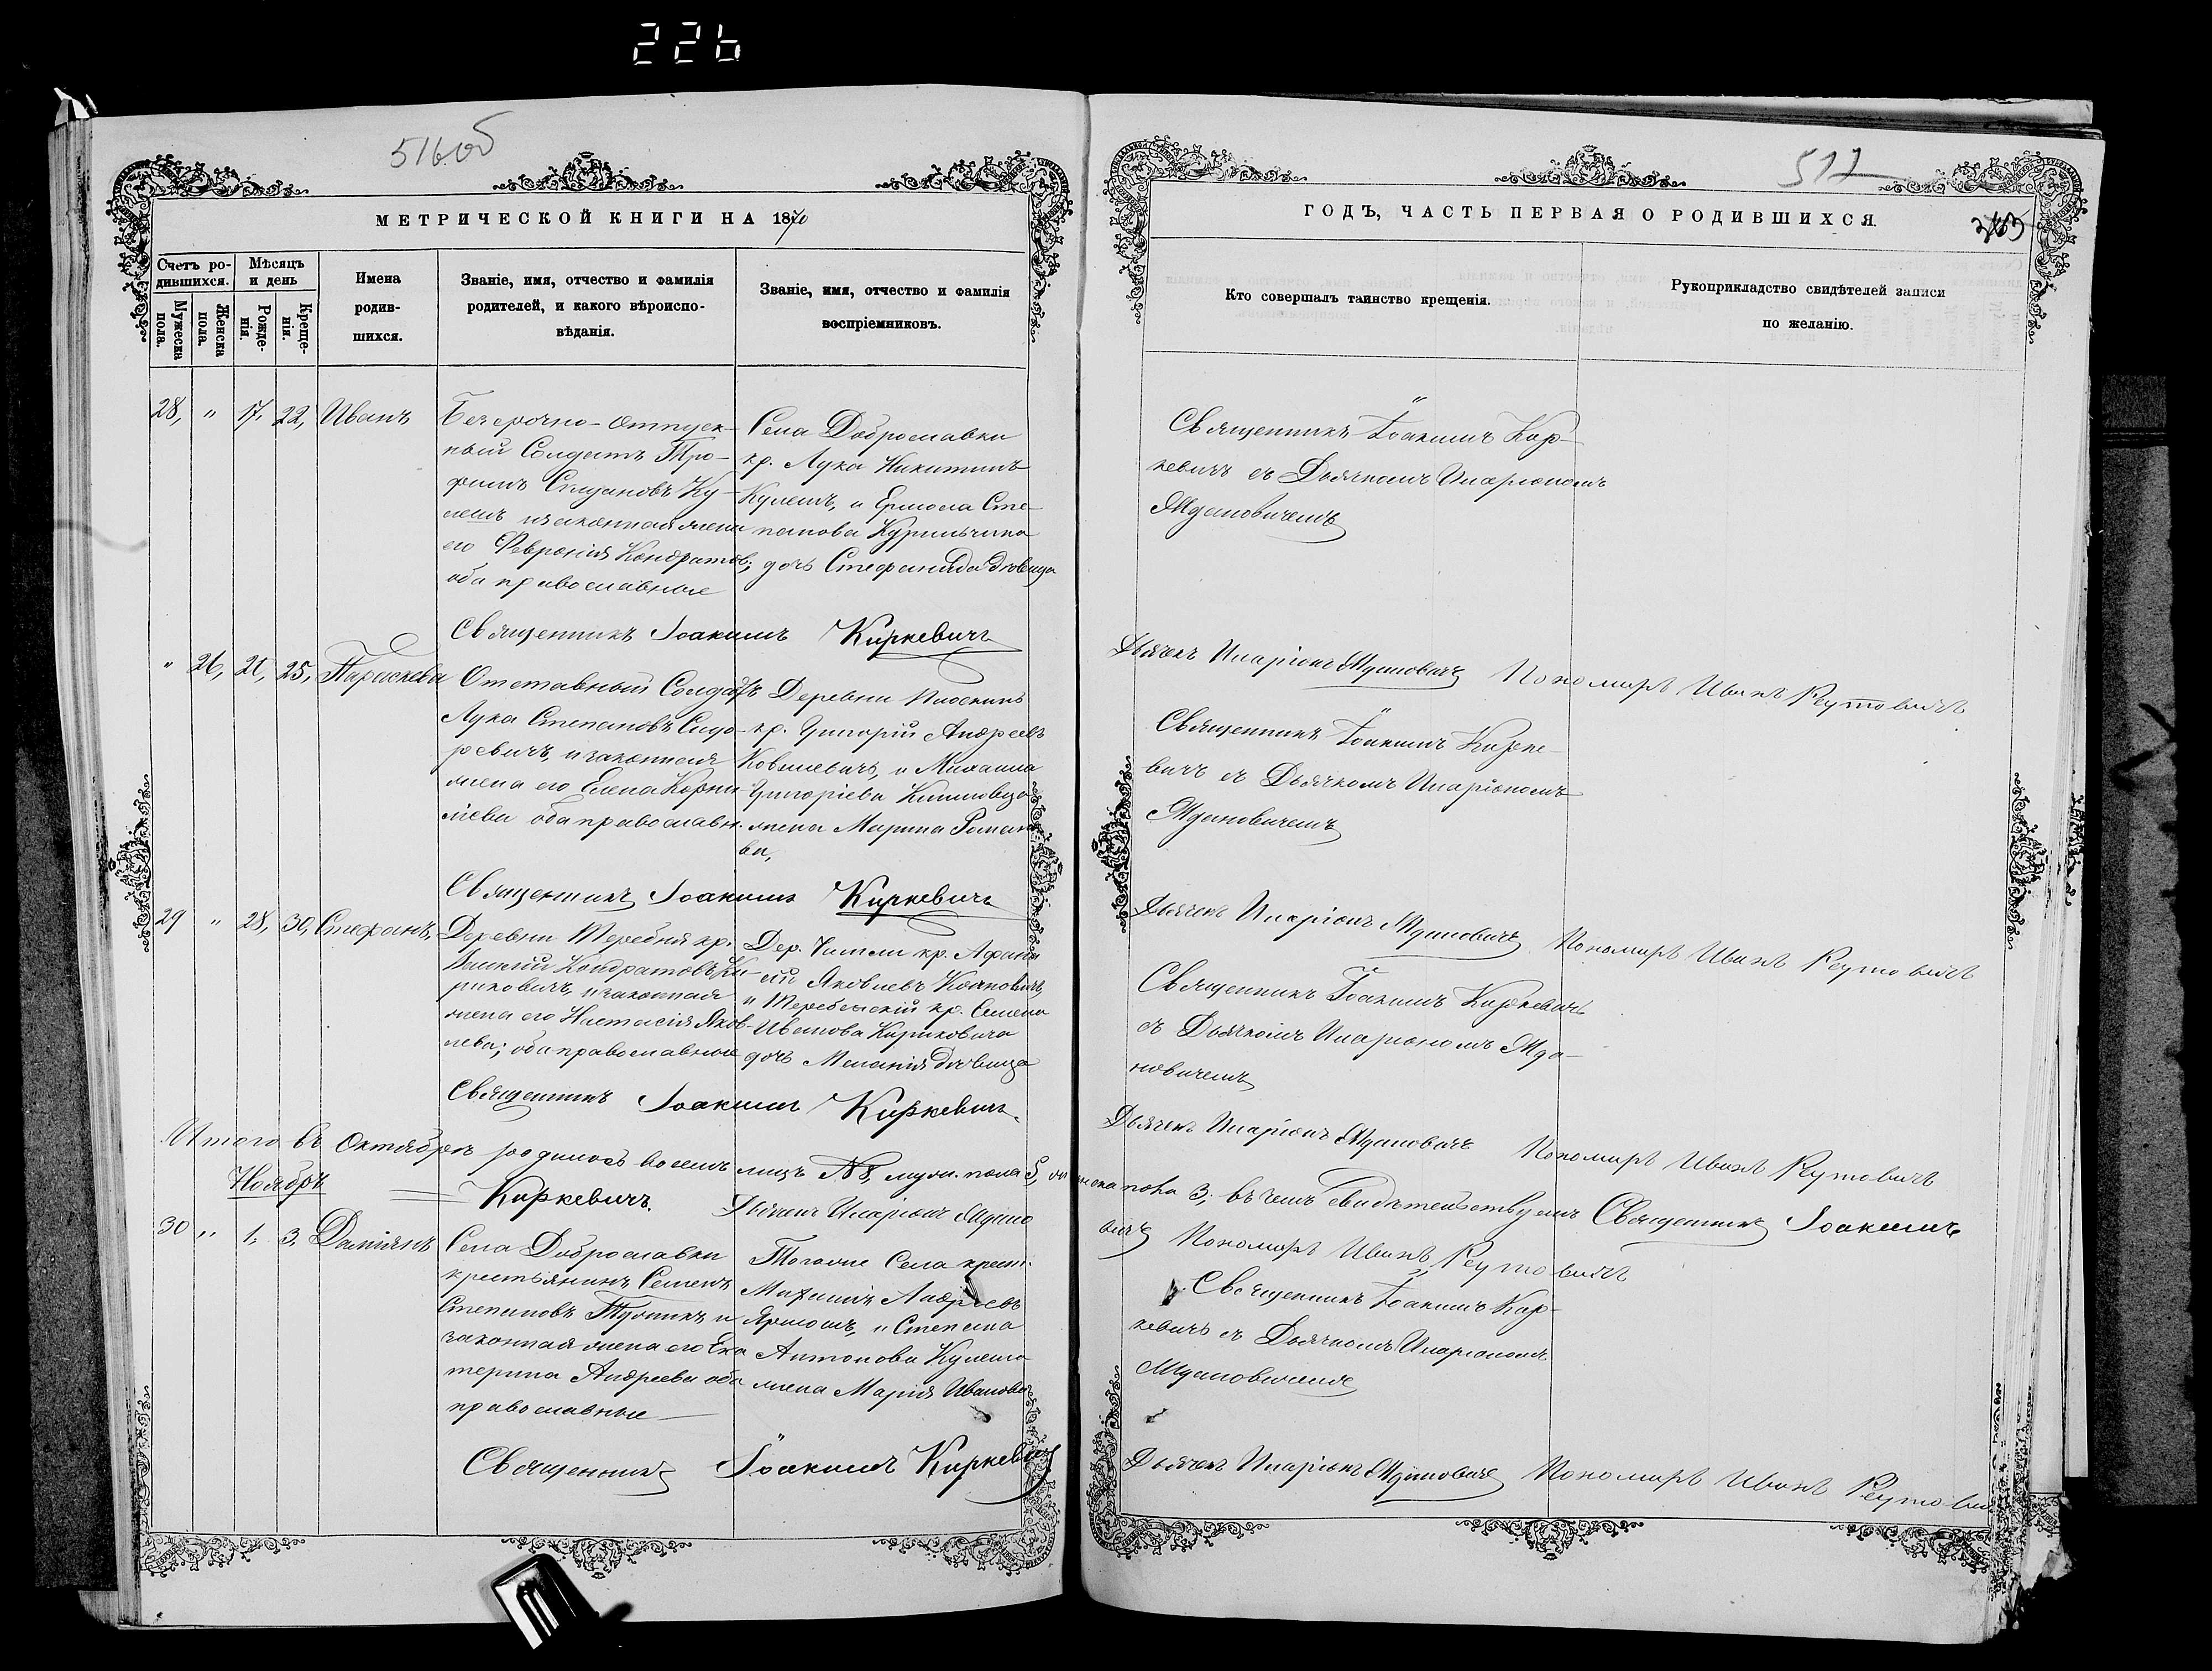 226
516об
МЕТРИЧЕСКОЙ КНИГИ НА 1870
Счетъ ро-
дившихся.
Мужеска пола.
Женска пола.
Мѣсяцъ и день
Рожде-
нія.
Креще-
нія.
Имена
родив-
шихся.
Званіе, имя, отчество и фамилія
родителей, и какого вѣроиспо-
вѣданія.
Званіе, имя, отчество и фамилія
воспріемниковъ.
28, " 17, 22, Иванъ
Безсрочно-отпуск-
ный Солдатъ Тро-
фимъ Степановъ Ку-
лешъ и законная жена
его Феврония Кондратов;
оба православные
Села Доброславки
кр. Лука Никитинъ
Кулешъ, и Ермола Сте-
панова Курильчика
дочь Стефанида дѣвица
Священникъ Іоакимъ Киркевичъ
" 26, 21, 25, Параскева
Отставный Солдатъ
Лука Степановъ Сидо-
ревичъ, и законная
жена его Елена Корни-
ліева оба православн.
Деревни Плоскинь
кр. Григорій Андреевъ
Ковалевичъ, и Михаила
Григоріева
жена Марина Романо-
ва,
Священникъ Іоакимъ Киркевичъ
29 " 28, 30, Стефанъ,
Деревни Теребня кр.
Кондратовъ Ки-
риковичъ, и законная
жена его Настасія Яков-
лева; оба православные
Дер. кр. Афана-
сій Яковлевъ
и Теребенскій кр. Семена
Иванова Кириковича
дочь Меланія дѣвица
Священникъ Іоакимъ Киркевичъ
Итого въ Октябрѣ родилось восемь лицъ № 8, муж. пола 5,
Ноябрь
Киркевичъ. Дьячекъ Иларіонъ Ждано
30 " 1, 3, Даміянъ
Села Доброславки
крестьянинъ Семенъ
Степановъ и
законная жена его Ека
терина Андреева оба
православные
Тогоже Села крест.
Андреевъ
Ярмошъ, и Степана
Антонова Кулеша
жена Марія Иванова
Священникъ Іоакимъ Киркевичъ
517
ГОДЪ, ЧАСТЬ ПЕРВАЯ О РОДИВШИХСЯ.
Кто совершалъ таинство крещенія.
Рукоприкладство свидѣтелей записи
по желанію.
Священникъ Іоакимъ Кир-
кевичъ съ Дьячкомъ Иларіономъ
Ждановичемъ
Дьячекъ Иларіонъ Ждановичъ Пономаръ Иванъ Реутовичъ
Священникъ Іоакимъ Кирке-
вичъ съ Дьячкомъ Иларіономъ
Ждановичемъ
Дьячекъ Иларіонъ Ждановичъ Пономаръ Иванъ Реутовичъ
Священникъ Іоакимъ Киркевичъ
съ Дьячкомъ Иларіономъ Жда-
новичемъ
Дьячекъ Иларіонъ Ждановичъ Пономаръ Иванъ Реутовичъ
женска пола 3; въ чемъ свидѣтельствуемъ Священникъ Іоакимъ
вичъ Пономаръ Иванъ Реутовичъ
Священникъ Іоакимъ Кир-
кевичъ съ Дьячкомъ Иларіономъ
Ждановичемъ
Дьячекъ Иларіонъ Ждановичъ Пономаръ Иванъ Реутови